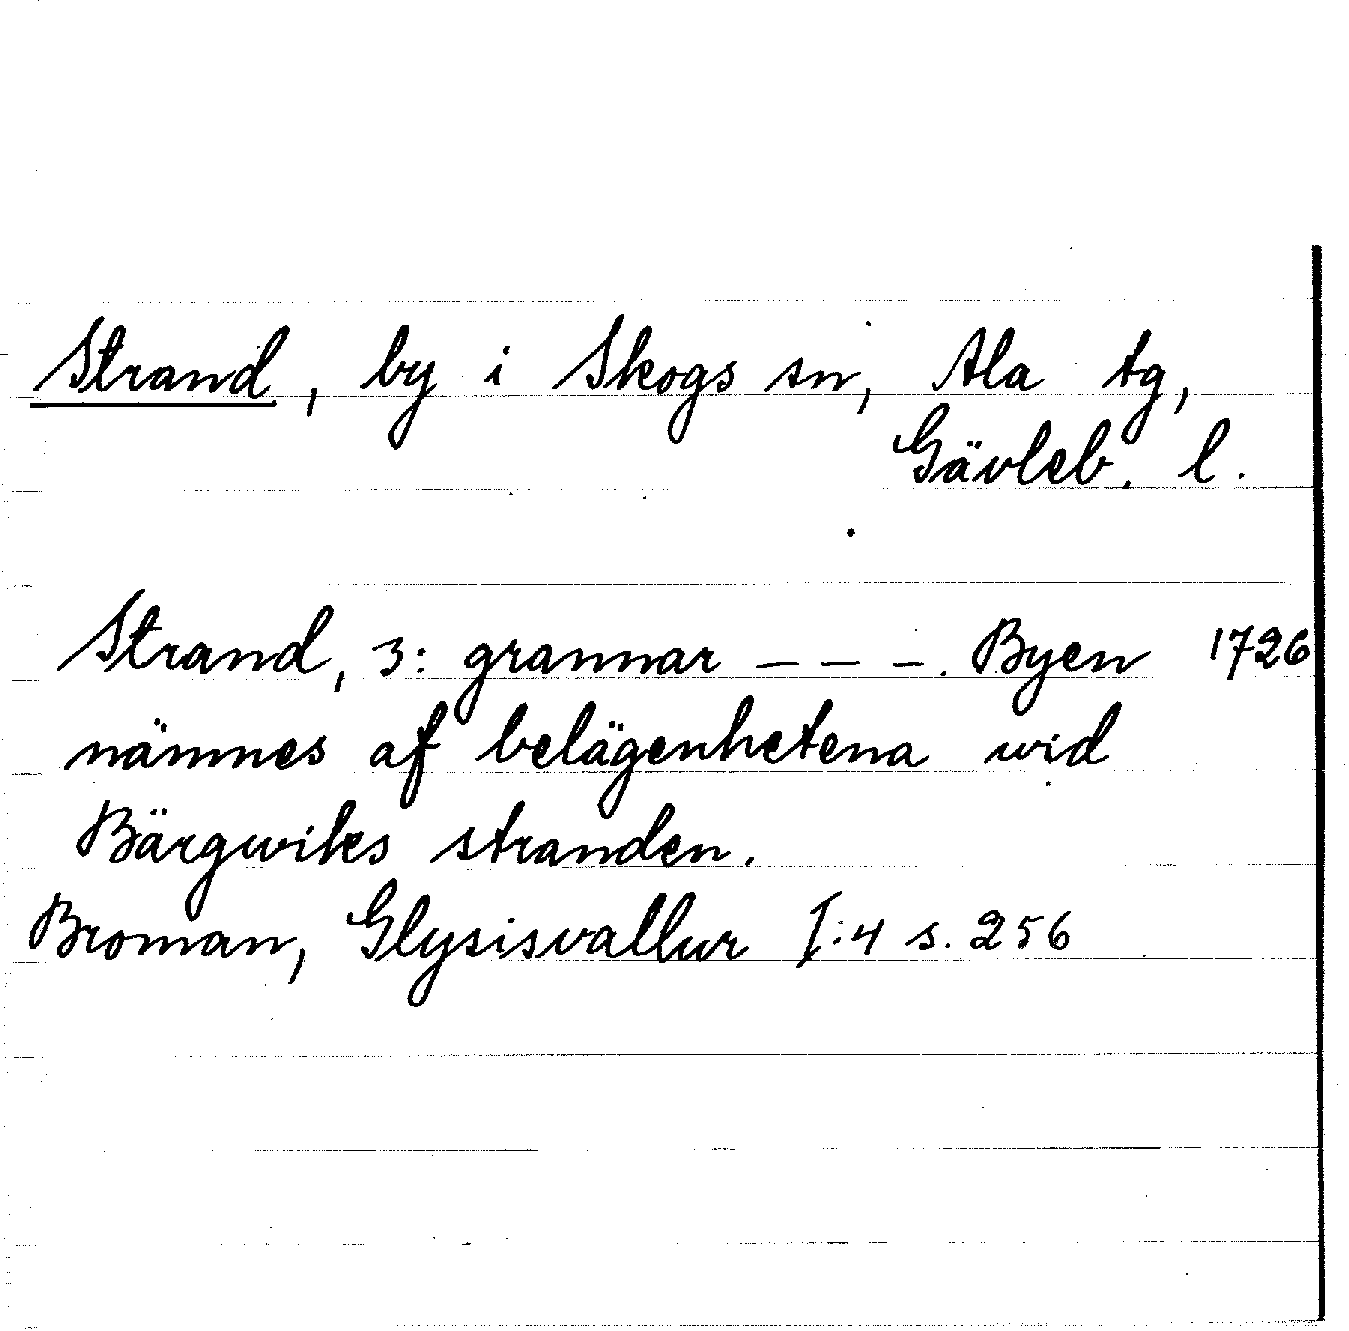 Strand, by i Skogs sn, Ala tg,
Gävleb. l.
Strand, 3: grannar – – –. Byen 1726
nämnes af belägenhetena wid
Bärgwiks stranden.
Broman, Glysisvallur I:4 s. 256